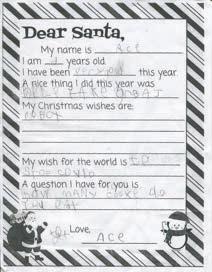 Dear Santa,
My name is Ace
I am years old.
I have been this year.
A nice thing I did this year was
My Christmas wishes are:
robot
My wish for the world is
stop covid
A question I have for you is
how many cookie do
you eat
Love,
Ace